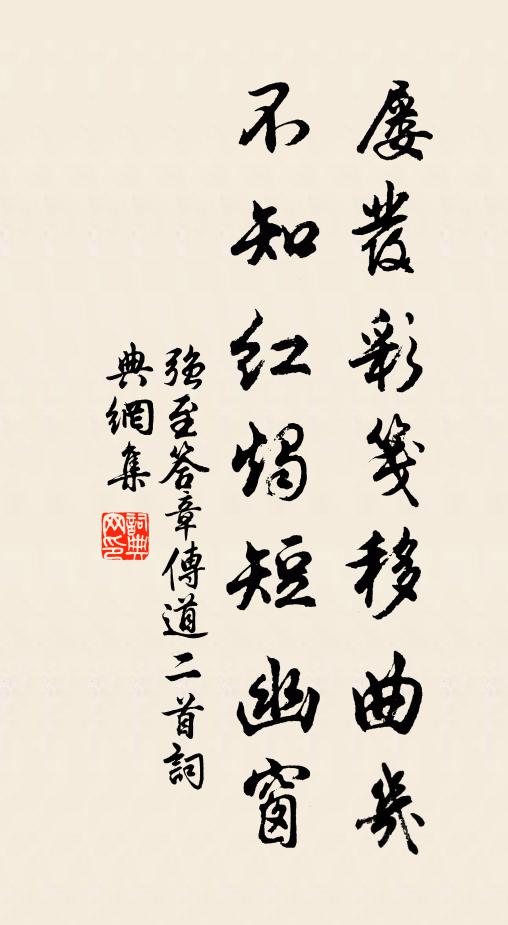 屡發彩箋移曲幾
不知紅燭短幽窗
強至答章傳道二首詞
典網集
詞典網印